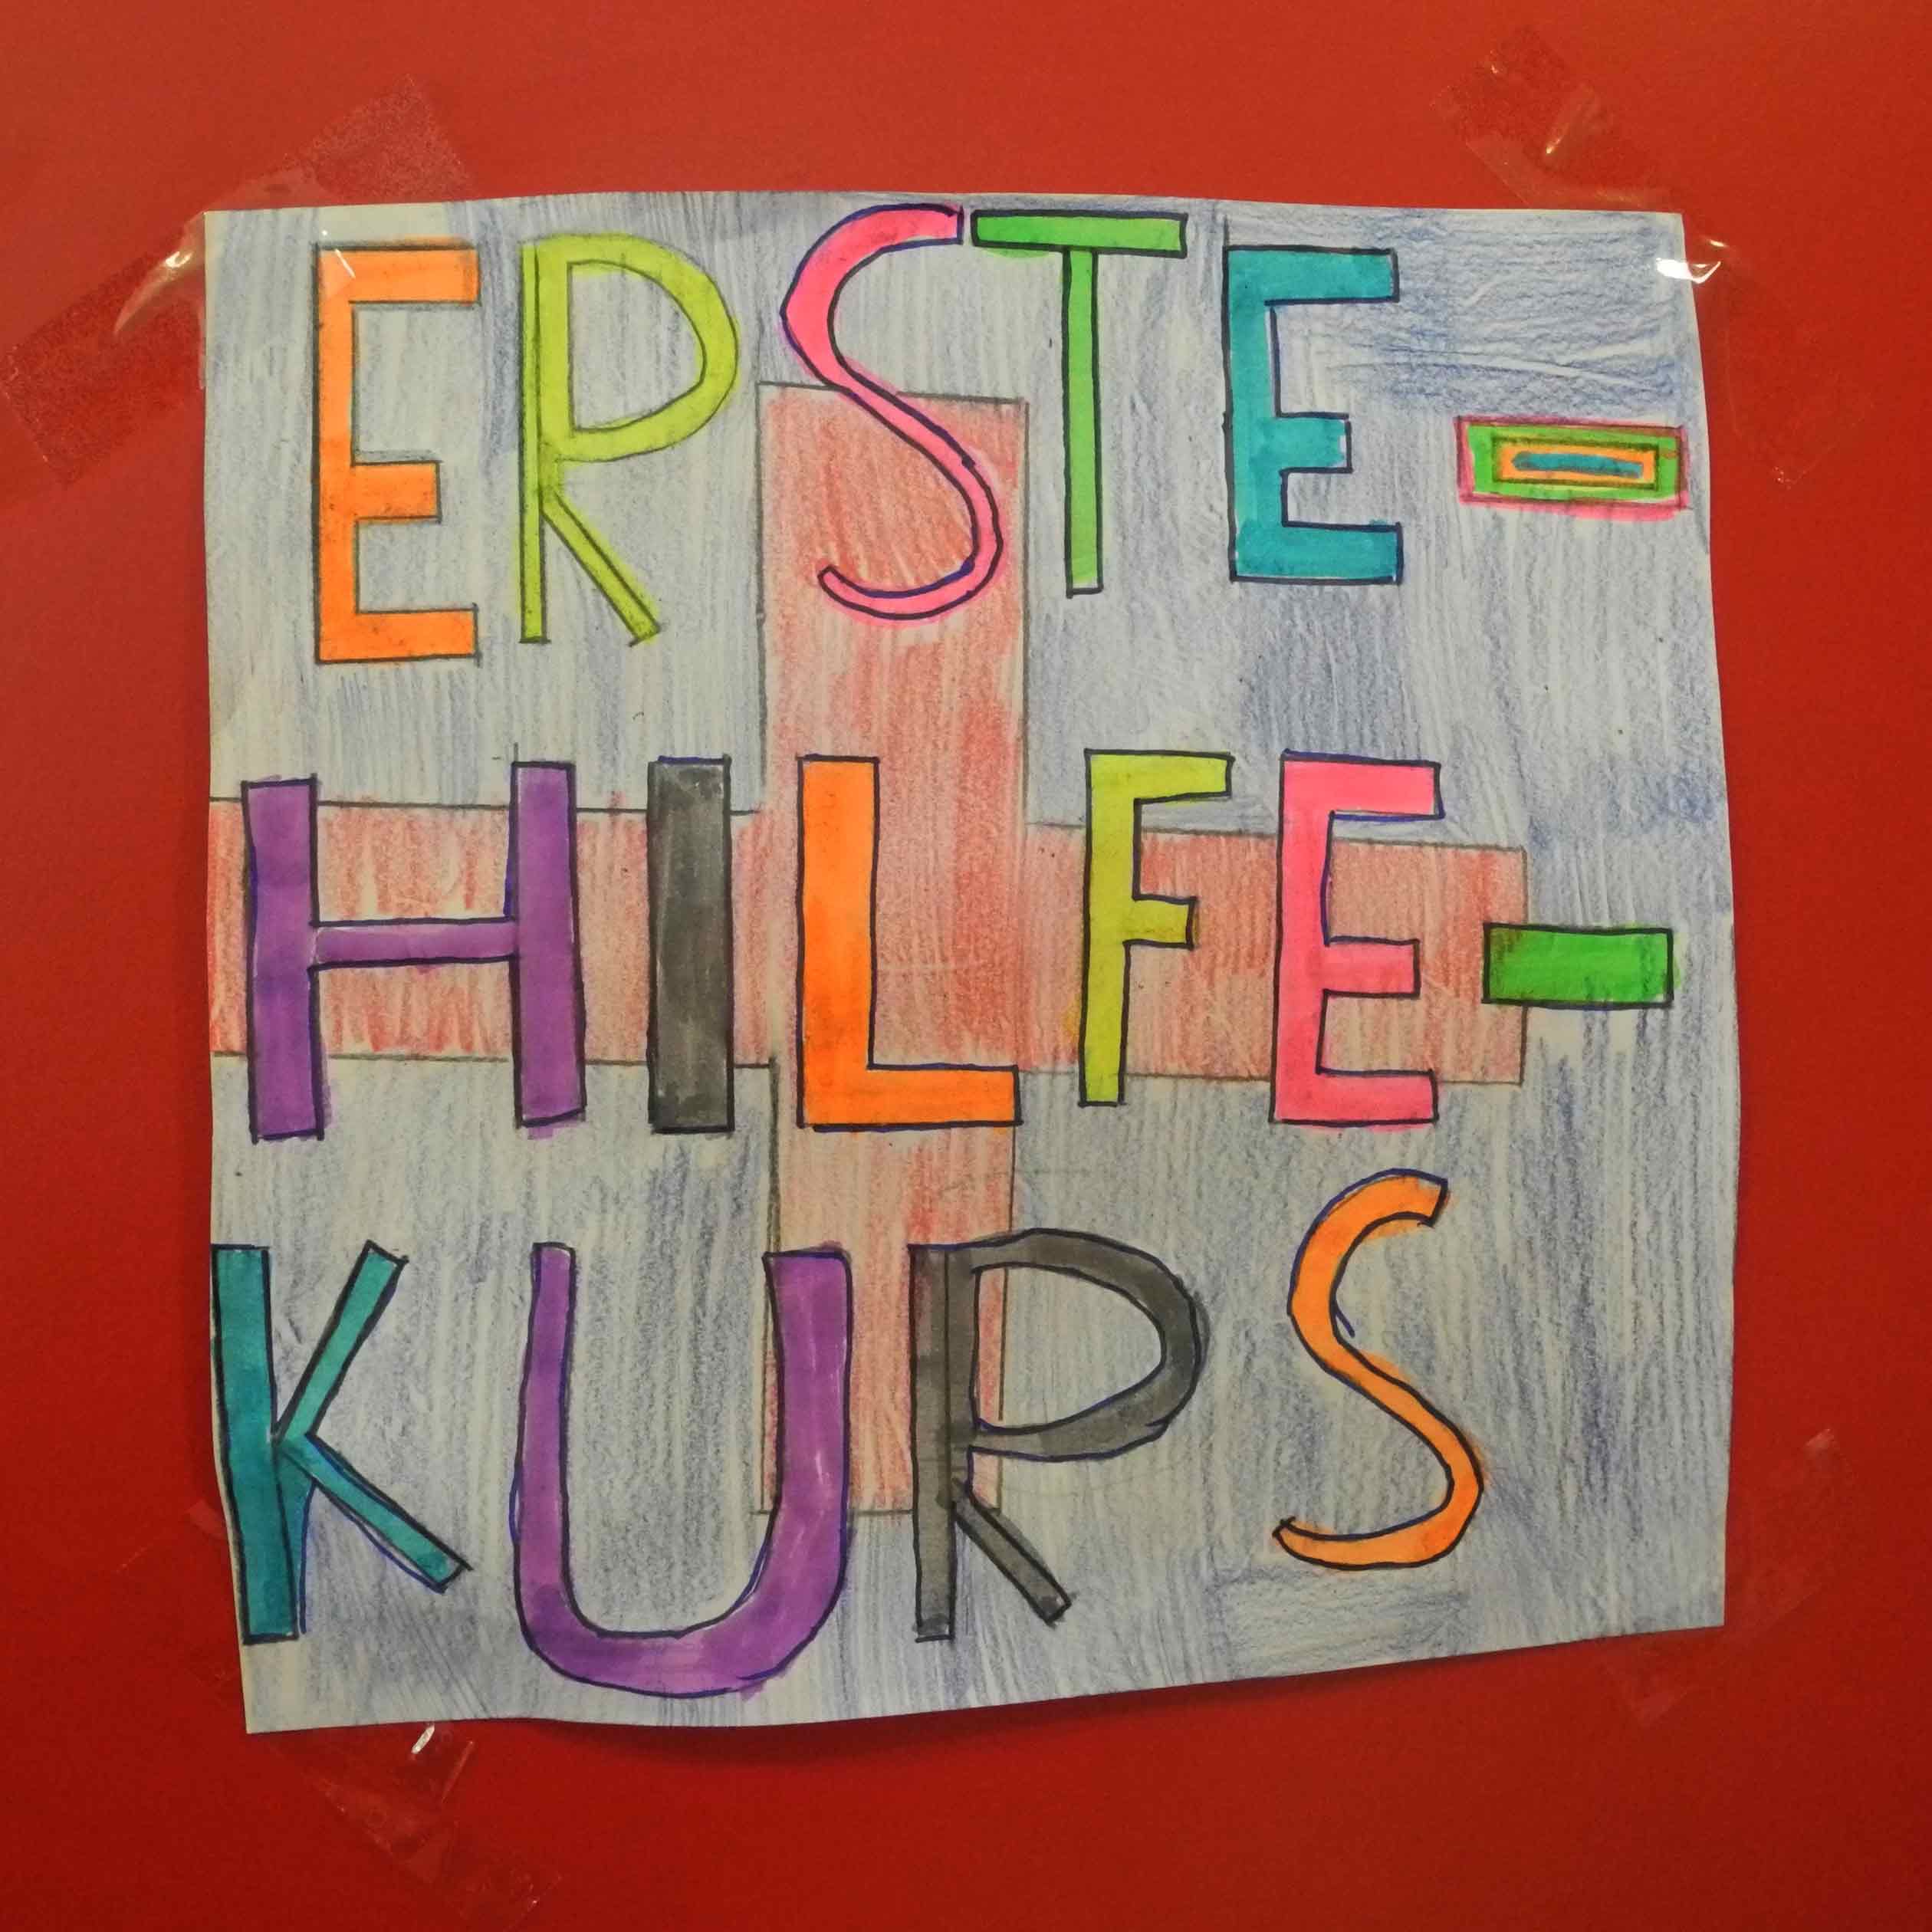 ERSTE-
HILFE-
KURS